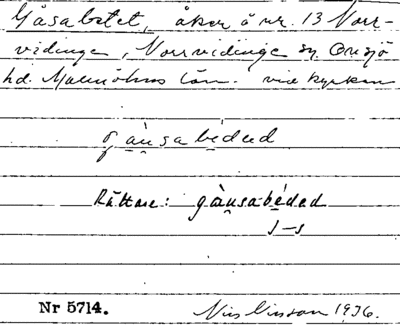 Gåsabetet, åker å nr. 13 Norr-
vidinge, Norrvidinge sn Onsjö
hd. Malmöhus län. vid kyrkan
gàu̯sabédəd
Rättare: gàu̯sabédəd
s–s
Nr 5714.
Nils Nilsson 1936.